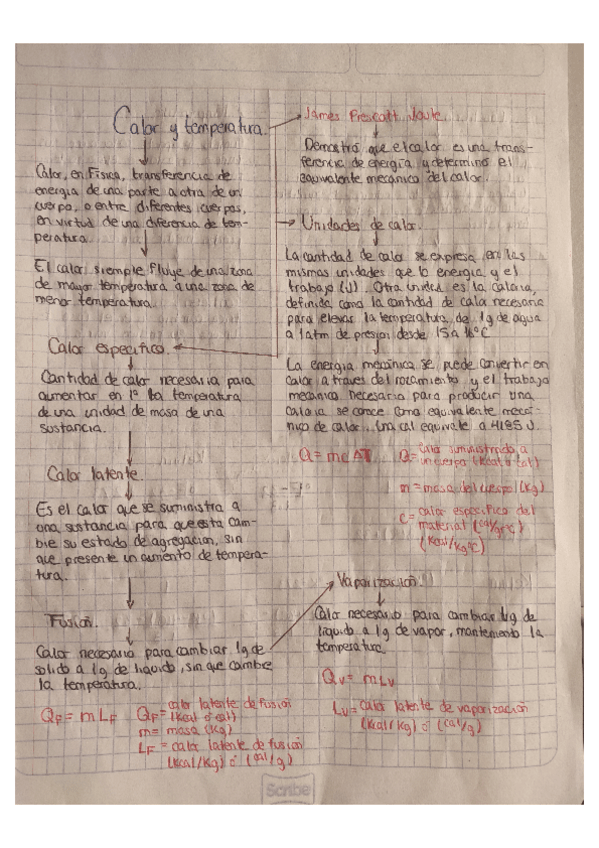 Calor y temperatura.
Calor, en Física, transferencia de
energía de una parte a otra de un
cuerpo, o entre diferentes cuerpos,
en virtud de una diferencia de tem-
peratura.
El calor siempre fluye de una zona
de mayor temperatura a una zona de
menor temperatura.
Calor especifico.
Cantidad de calor necesaria para
aumentar en 1° la temperatura
de una unidad de masa de una
sustancia.
Calor latente.
Es el calor que se suministra a
una sustancia para que esta cam-
bie su estado de agregación, sin
que presente un aumento de tempera-
tura.
Fusión.
Calor necesario para cambiar 1g de
solido a 1g de liquido, sin que cambie
la temperatura.
QF = m LF
QF = calor latente de fusión
(Kcal ó cal)
m = masa (Kg)
LF = calor latente de fusión
(Kcal/Kg) ó (cal/g)
James Prescott Joule
Demostró que el calor es una trans-
ferencia de energía y determino el
equivalente mecánico del calor.
Unidades de calor.
La cantidad de calor se expresa en las
mismas unidades que la energía y el
trabajo (J). Otra unidad es la caloria,
definida como la cantidad de calor necesaria
para elevar la temperatura de 1g de agua
a 1atm de presion desde 15 a 16°C
La energía mecánica se puede convertir en
calor a traves del rozamiento y el trabajo
mecánico necesario para producir una
caloria se conoce como equivalente mecá-
nico de calor. Una cal equivale a 4.1855 J.
Q = mcΔT
Q = calor suministrado a
un cuerpo (Kcal o cal)
m = masa del cuerpo (Kg)
c = calor especifico del
material (cal/g°C)
(Kcal/Kg°C)
Vaporización.
Calor necesario para cambiar 1g de
liquido a 1g de vapor, manteniendo la
temperatura.
Qv = m Lv
Lv = calor latente de vaporización
(Kcal/Kg) ó (cal/g)
Scribe